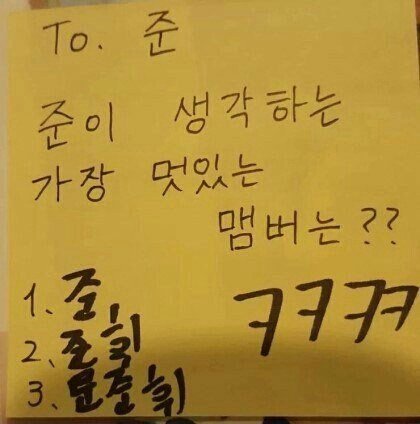 To. 준
준이 생각하는
가장 멋있는
맴버는??
1. 준
2. 준휘
3. 문준휘
ㅋㅋㅋㅋ